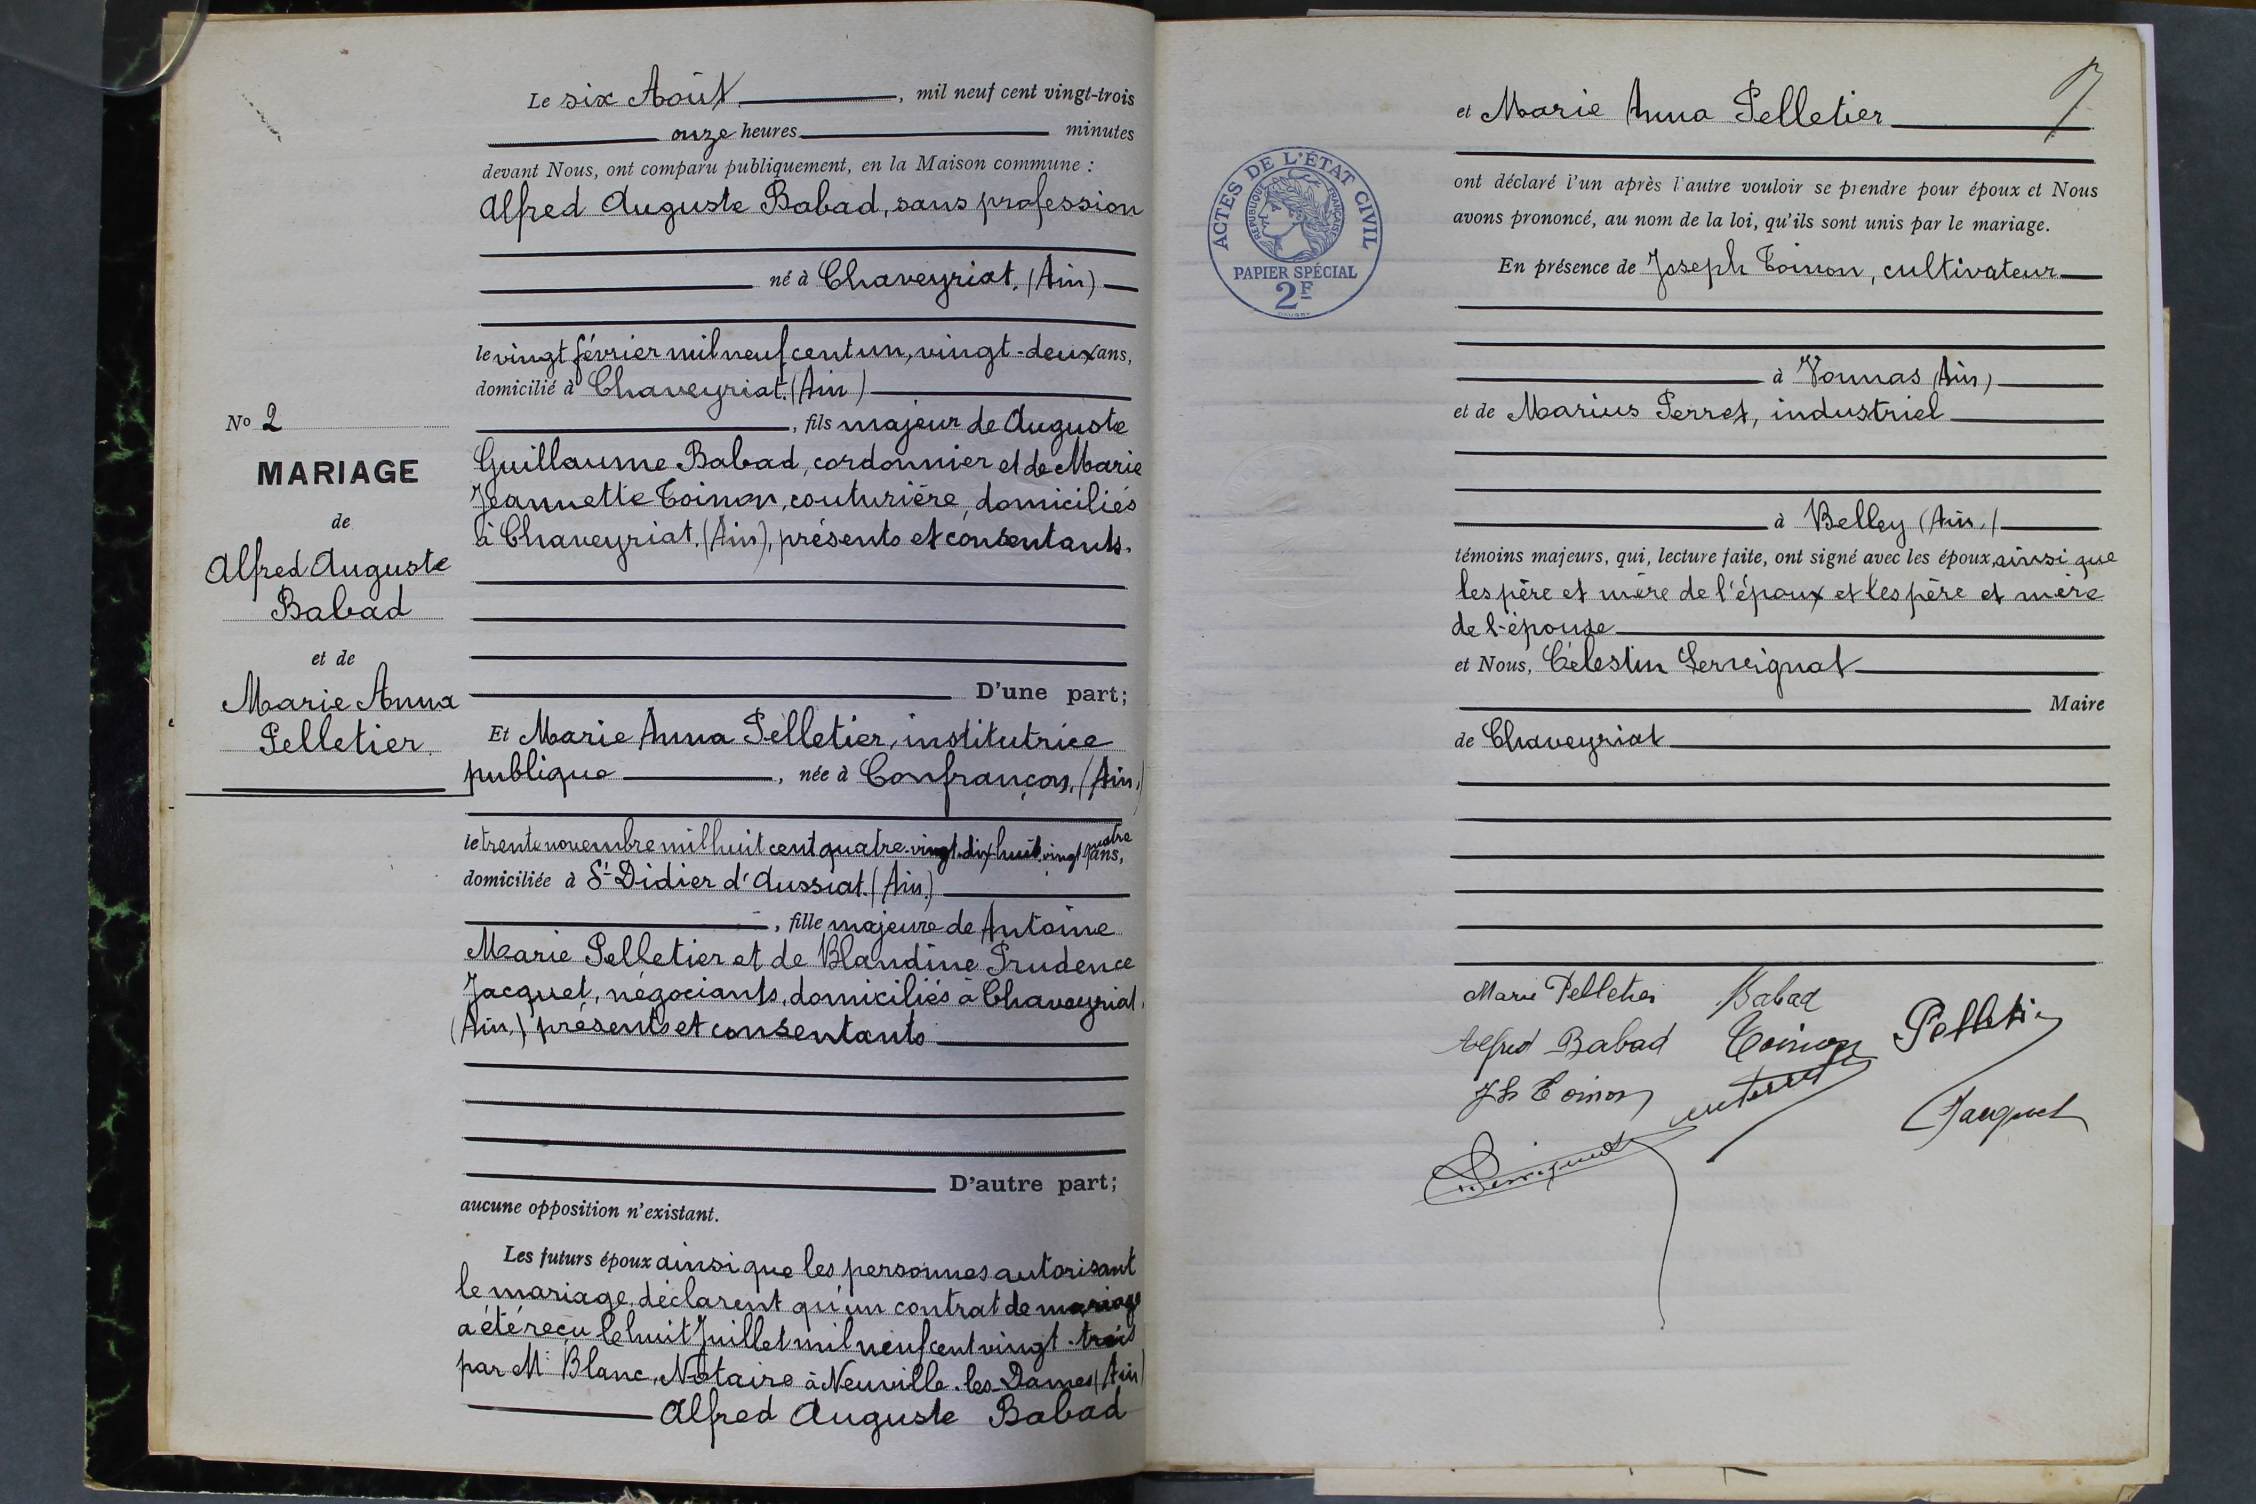 Le six Août, mil neuf cent vingt-trois
onze heures minutes
devant Nous, ont comparu publiquement, en la Maison commune :
Alfred Auguste Babad, sans profession
né à Chaveyriat, (Ain)
le vingt février mil neuf cent un, vingt-deux ans,
domicilié à Chaveyriat. (Ain)
, fils majeur de Auguste
Guillaume Babad, cordonnier et de Marie
Jeannette Toinon, couturière, domiciliés
à Chaveyriat. (Ain), présents et consentants.
D'une part;
No 2
MARIAGE
de
Alfred Auguste
Babad
et de
Marie Anna
Pelletier.
Et Marie Anna Pelletier, institutrice
publique, née à Confrançon, (Ain.)
le trente novembre mil huit cent quatre-vingt-dix huit, vingt quatre ans,
domiciliée à St Didier d'Aussiat. (Ain.)
, fille majeure de Antoine
Marie Pelletier et de Blandine Prudence
Jacquet, négociants, domiciliés à Chaveyriat.
(Ain.) présents et consentants
D'autre part;
aucune opposition n'existant.
Les futurs époux ainsi que les personnes autorisant
le mariage, déclarent qu'un contrat de mariage
a été reçu le huit Juillet mil neuf cent vingt-trois
par Me Blanc, Notaire à Neuville-les-Dames (Ain)
Alfred Auguste Babad
et Marie Anna Pelletier
ACTES DE L'ÉTAT CIVIL
RÉPUBLIQUE FRANÇAISE
PAPIER SPÉCIAL
2F
ont déclaré l'un après l'autre vouloir se prendre pour époux et Nous
avons prononcé, au nom de la loi, qu'ils sont unis par le mariage.
En présence de Joseph Toinon, cultivateur
à Vonnas (Ain)
et de Marius Perret, industriel
à Belley (Ain.)
témoins majeurs, qui, lecture faite, ont signé avec les époux, ainsi que
les père et mère de l'époux et les père et mère
de l'épouse
et Nous, Célestin Serveignat
Maire
de Chaveyriat
Marie Pelletier Babad
Alfred Babad Toinon Pelletier
Jh Toinon Perret Jacquet